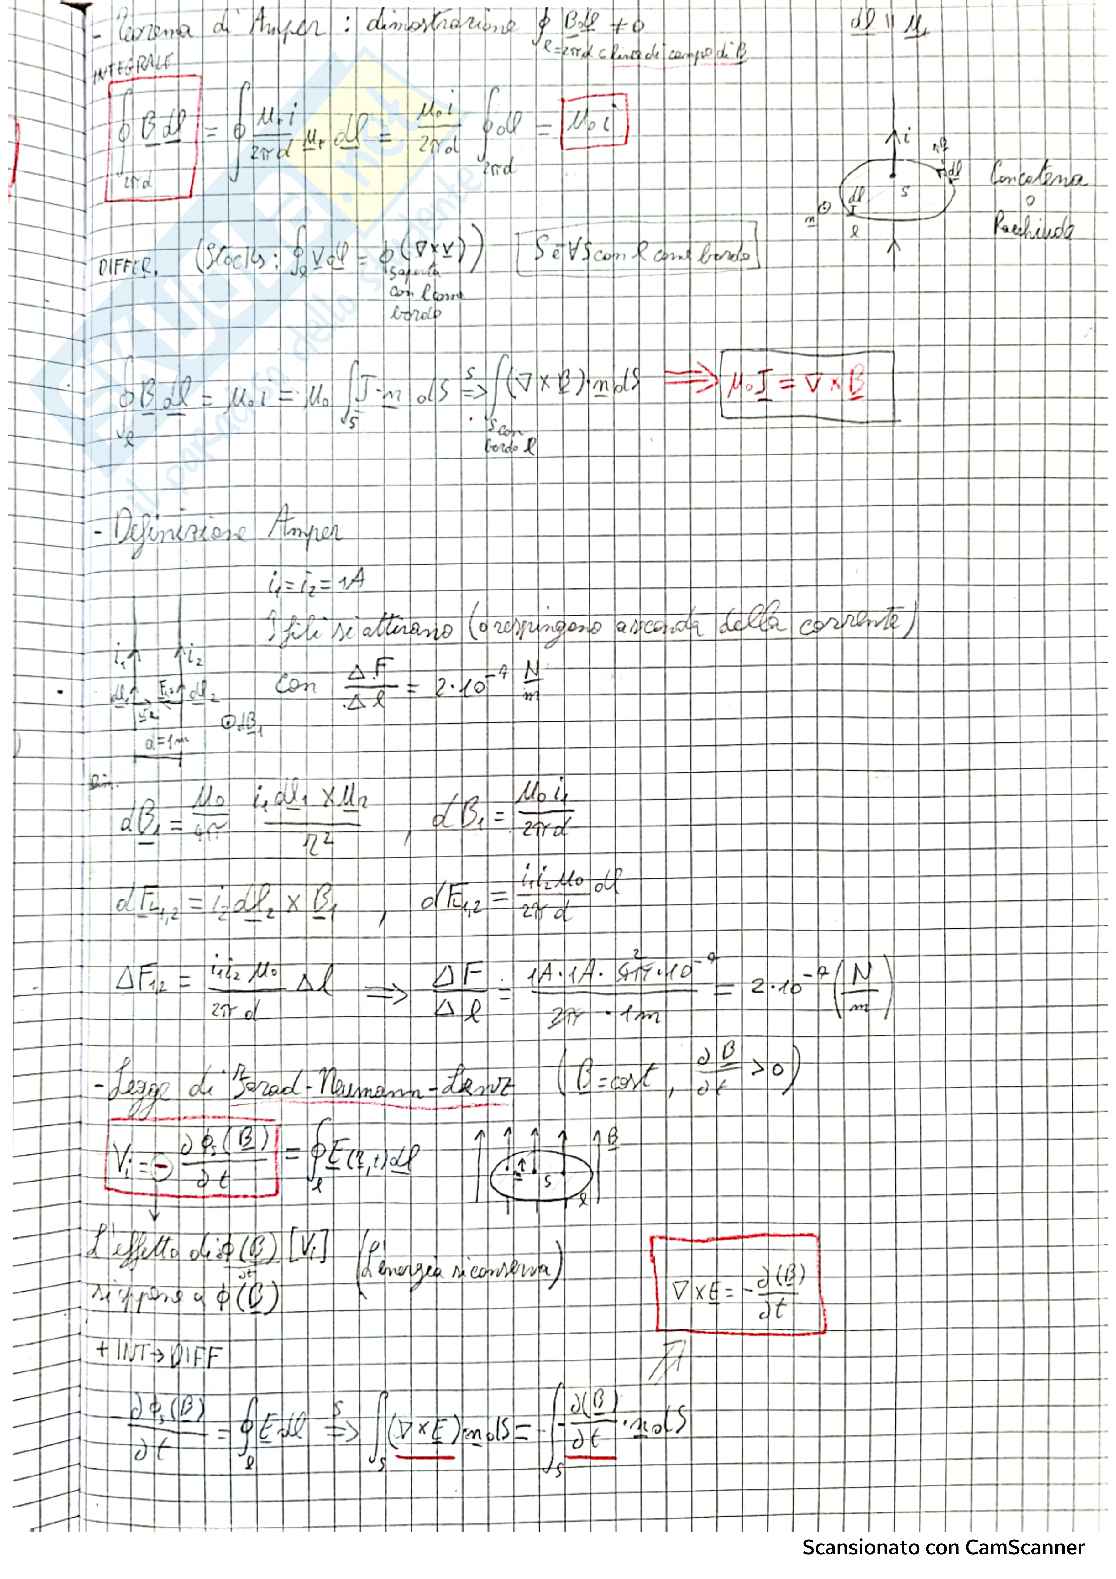 - Teorema di Amper : dimostrazione ∮ B dl ≠ 0    dl ∥ u_r
l=2πd = linea di campo di B
INTEGRALE
∮_{2πd} B dl = ∮ μ₀i/2πd u_r dl = μ₀i/2πd ∮_{2πd} dl = μ₀ i
i
dl
S
n
dl
l
Concatena
o
Racchiude
DIFFER. (Stocks : ∮_l V dl = ∮ (∇×V)) [S è ∀S con l come bordo]
S aperta
con l come
bordo
∮_l B dl = μ₀ i = μ₀ ∫_S J · n dS ⇒^S ∫ (∇×B) · n dS ⟹ μ₀ J = ∇×B
S con
bordo l
- Definizione Amper
i₁ = i₂ = 1A
I fili si attirano (o respingono a seconda della corrente)
i₁ i₂
con ΔF/Δl = 2·10⁻⁷ N/m
dl₁ F₁,₂ dl₂
⊙dB₁
d=1m
Dim.
dB₁ = μ₀/4π i₁ dl₁ × u_r / r² , dB₁ = μ₀ i₁/2πd
dF₁,₂ = i₂ dl₂ × B₁ , dF₁,₂ = i₁i₂μ₀/2πd dl
ΔF₁,₂ = i₁i₂ μ₀/2πd Δl ⟹ ΔF/Δl = 1A·1A· 4π·10⁻⁷ / 2π · 1m = 2·10⁻⁷ (N/m)
2
- Legge di Farad-Neumann-Lenz (B=cost, ∂B/∂t >0)
V_i = - ∂ϕ_S(B)/∂t = ∮_l E(r,t) dl
B
n
S
l
L'effetto di ϕ(B)/∂t [V_i] (L'energia si conserva)
si oppone a ϕ(B)
∇×E = - ∂(B)/∂t
+ INT → DIFF
∂ϕ_S(B)/∂t = ∮_l E dl ⇒^S ∫_S (∇×E) · n dS = ∫_S -∂(B)/∂t · n dS
Scansionato con CamScanner